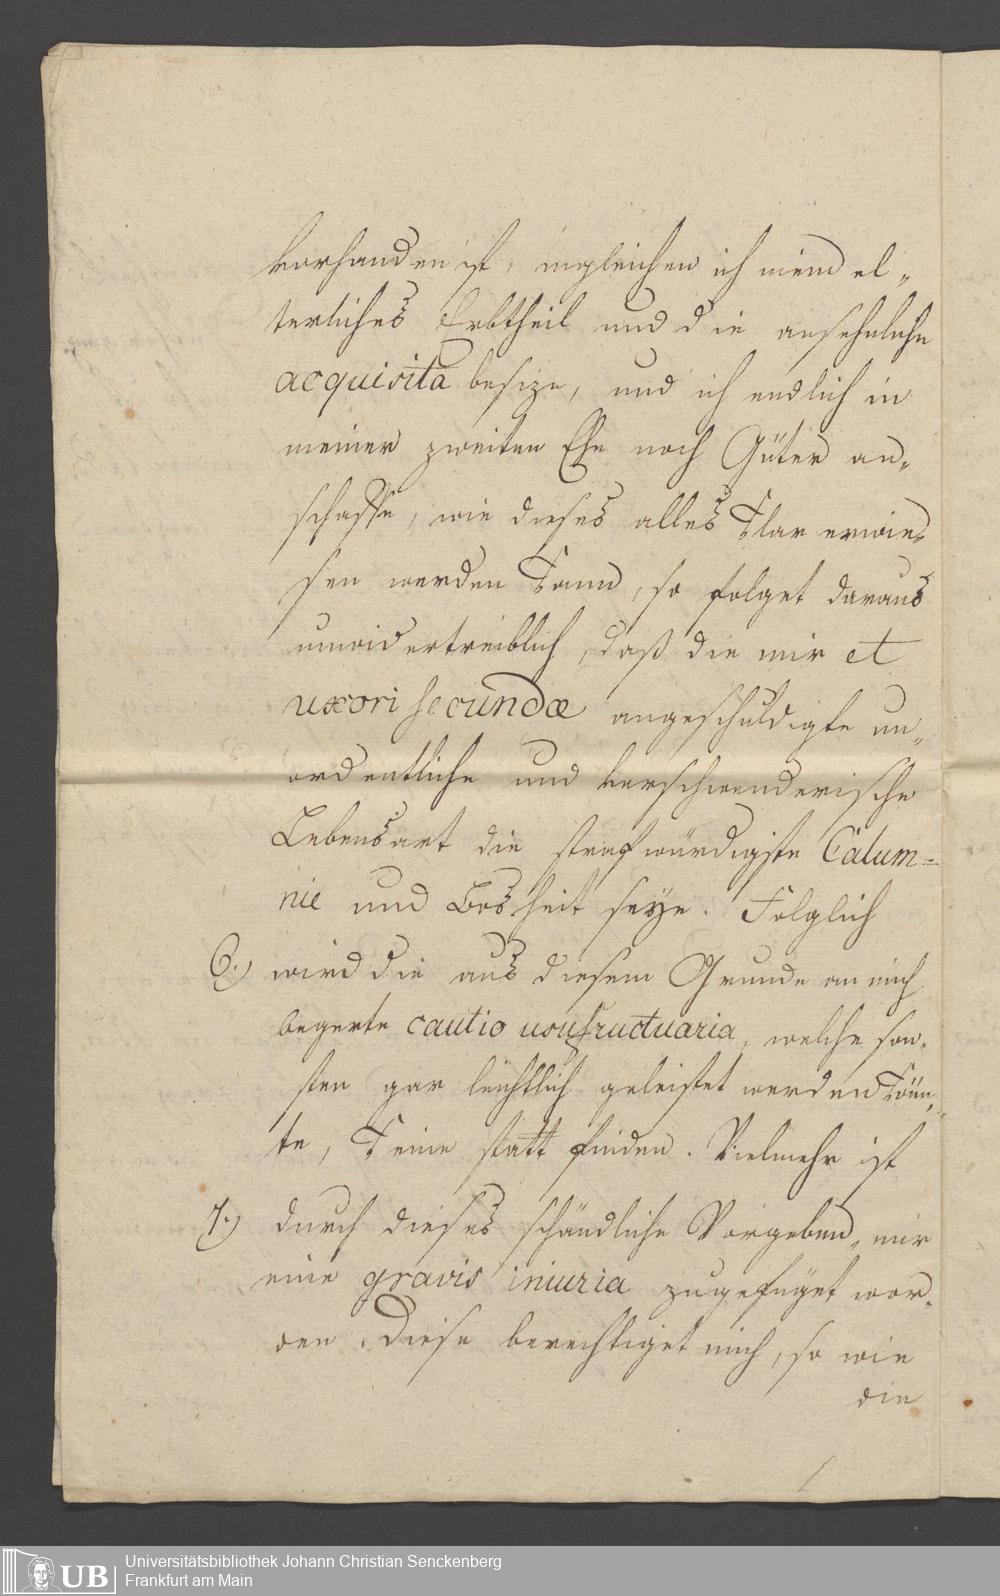 vorhanden ist, ingleichen ich mein el„
terliches Erbtheil und die ansehnliche
acquisita besize, und ich endlich in
meiner zweiten Ehe noch Güter an„
schaffe, wie dieses alles klar erwie„
sen werden kann, so folget daraus
unwidertreiblich, daß die mir et
uxori secundæ angeschuldigte un„
ordentliche und verschwenderische
Lebensart die strafwürdigste Calum=
nie und Bosheit seye. Folglich
6.) wird die aus diesem Grunde an mich
begerte cautio usufructuaria, welche son„
sten gar leichtlich geleistet werden könn„
te, keine statt finden. Vielmehr ist
7.) durch dieses schändliche Vorgeben, mir
eine gravis iniuria zugefüget wor„
den. Diese berechtiget mich, so wie
die
UB
Universitätsbibliothek Johann Christian Senckenberg
Frankfurt am Main